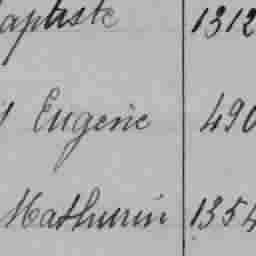 aptiste 1312
Eugénie 490
Mathurin 1354